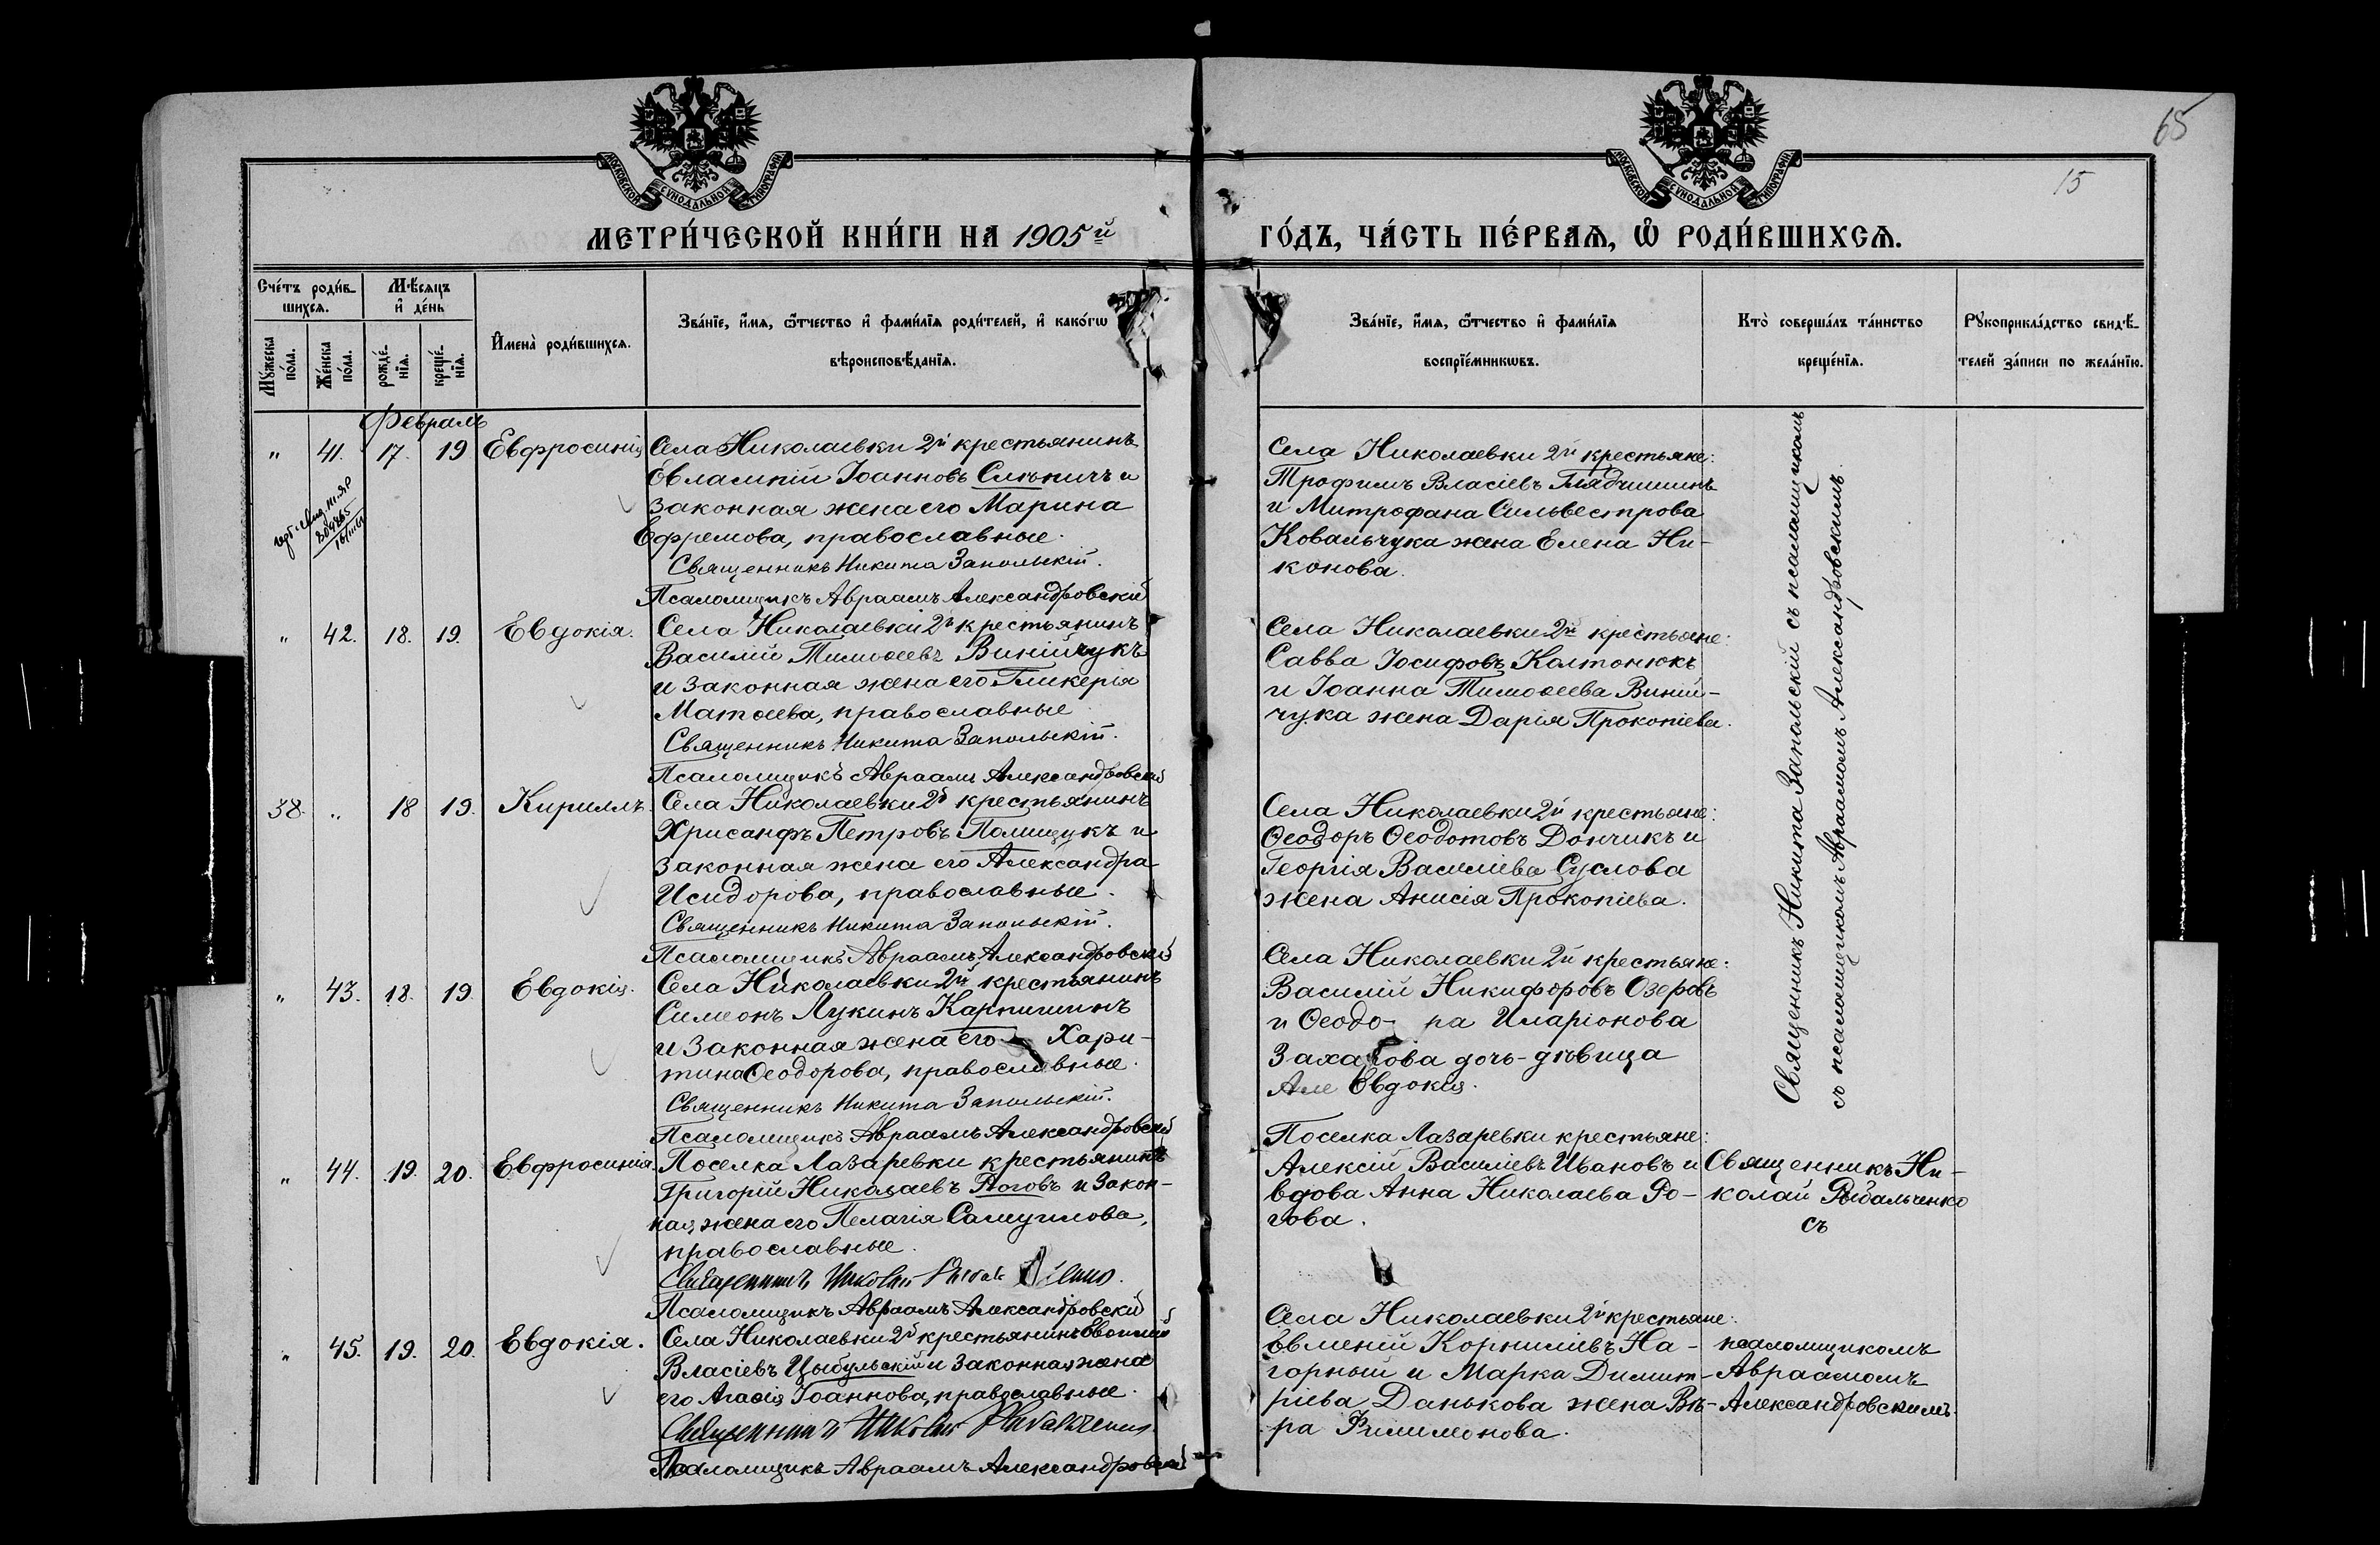 65
15
МОСКОВСКОЙ СѴНОДАЛЬНОЙ ТИПОГРАФІИ
МОСКОВСКОЙ СѴНОДАЛЬНОЙ ТИПОГРАФІИ
МЕТРИ́ЧЕСКОЙ КНИ́ГИ НА 1905й
ГО́ДЪ, ЧА́СТЬ ПЕ́РВАѦ, Ѡ҆ РОДИ́ВШИХСѦ.
Сче́тъ роди́в-
шихсѧ.
Мѣ́сѧцъ
и҆ де́нь
Мꙋ́жеска
по́ла.
Же́нска
по́ла.
рожде́-
нїѧ.
креще́-
нїѧ.
И҆мена̀ роди́вшихсѧ.
Зва́нїе, и҆́мѧ, ѻ҆́тчество и҆ фами́лїѧ роди́телей, и҆ како́гѡ
вѣроисповѣ́данїѧ.
Зва́нїе, и҆́мѧ, ѻ҆́тчество и҆ фами́лїѧ
воспрїе́мникѡвъ.
Кто̀ соверша́лъ та́инство
креще́нїѧ.
Рꙋкоприкла́дство свидѣ́-
телей за́писи по жела́нїю.
Февраль
" 41. 17. 19 Евфросинія
Села Николаевки 2й крестьянинъ
Евлампій Іоанновъ Слюпичъ и
законная жена его Марина
Ефремова, православные.
Священникъ Никита Запольскій.
Псаломщикъ Авраамъ Александровскій
Села Николаевки 2й крестьяне:
Трофимъ Власіевъ Глядчишинъ
и Митрофана Сильвестрова
Ковальчука жена Елена Ни-
конова.
" 42. 18. 19. Евдокія.
Села Николаевки 2й крестьянинъ
Василій Тимоѳеевъ Винійчукъ
и законная жена его Гликерія
Матѳеева, православные
Священникъ Никита Запольскій.
Псаломщикъ Авраамъ Александровскій
Села Николаевки 2й крестьяне:
Савва Іосифовъ Колтонюкъ
и Іоанна Тимоѳеева Виній-
чука жена Дарія Прокопіева.
38. " 18 19. Кириллъ.
Села Николаевки 2й крестьянинъ
Хрисанфъ Петровъ Полищукъ и
законная жена его Александра
Исидорова, православные.
Священникъ Никита Запольскій.
Псаломщикъ Авраамъ Александровскій
Села Николаевки 2й крестьяне:
Ѳеодоръ Ѳеодотовъ Дончикъ и
Георгія Василіева Суслова
жена Анисія Прокопіева.
" 43. 18. 19. Евдокія.
Села Николаевки 2й крестьянинъ
Симеонъ Лукинъ Карпишинъ
и законная жена его Хари-
тина Ѳеодорова, православные.
Священникъ Никита Запольскій.
Псаломщикъ Авраамъ Александровскій
Села Николаевки 2й крестьяне:
Василій Никифоровъ Озеровъ
и Ѳеодо- ра Иларіонова
Захарова дочь-дѣвица
Евдокія.
Священникъ Никита Запольскій съ псаломщикомъ
съ псаломщикомъ Авраамомъ Александровскимъ.
" 44. 19. 20. Евфросинія.
Поселка Лазаревки крестьянинъ
Григорій Николаевъ Роговъ и закон-
ная жена его Пелагія Самуилова,
православные.
Священникъ Николай
Псаломщикъ Авраамъ Александровскій
Поселка Лазаревки крестьяне:
Алексій Василіевъ Ивановъ и
вдова Анна Николаева Ро-
гова.
Священникъ Ни-
колай Рыбальченко
съ
" 45. 19. 20. Евдокія.
Села Николаевки 2й крестьянинъ
Власіевъ Цыбульскій и законная жена
его Агаѳія Іоаннова, православные.
Священникъ Николай Рыбальченко
Псаломщикъ Авраамъ Александровскій
Села Николаевки 2й крестьяне:
Евменій Корниліевъ На-
горный и Марка Димит-
ріева Данькова жена Вѣ-
ра Филимонова.
псаломщикомъ
Авраамомъ
Александровскимъ.